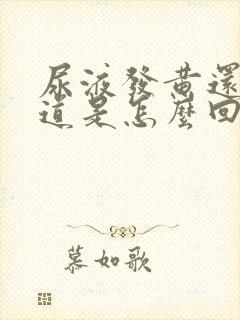 尿液發黃還
道是怎麼回
慕如歌